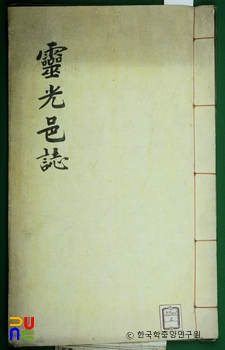 靈光邑誌
© 한국학중앙연구원